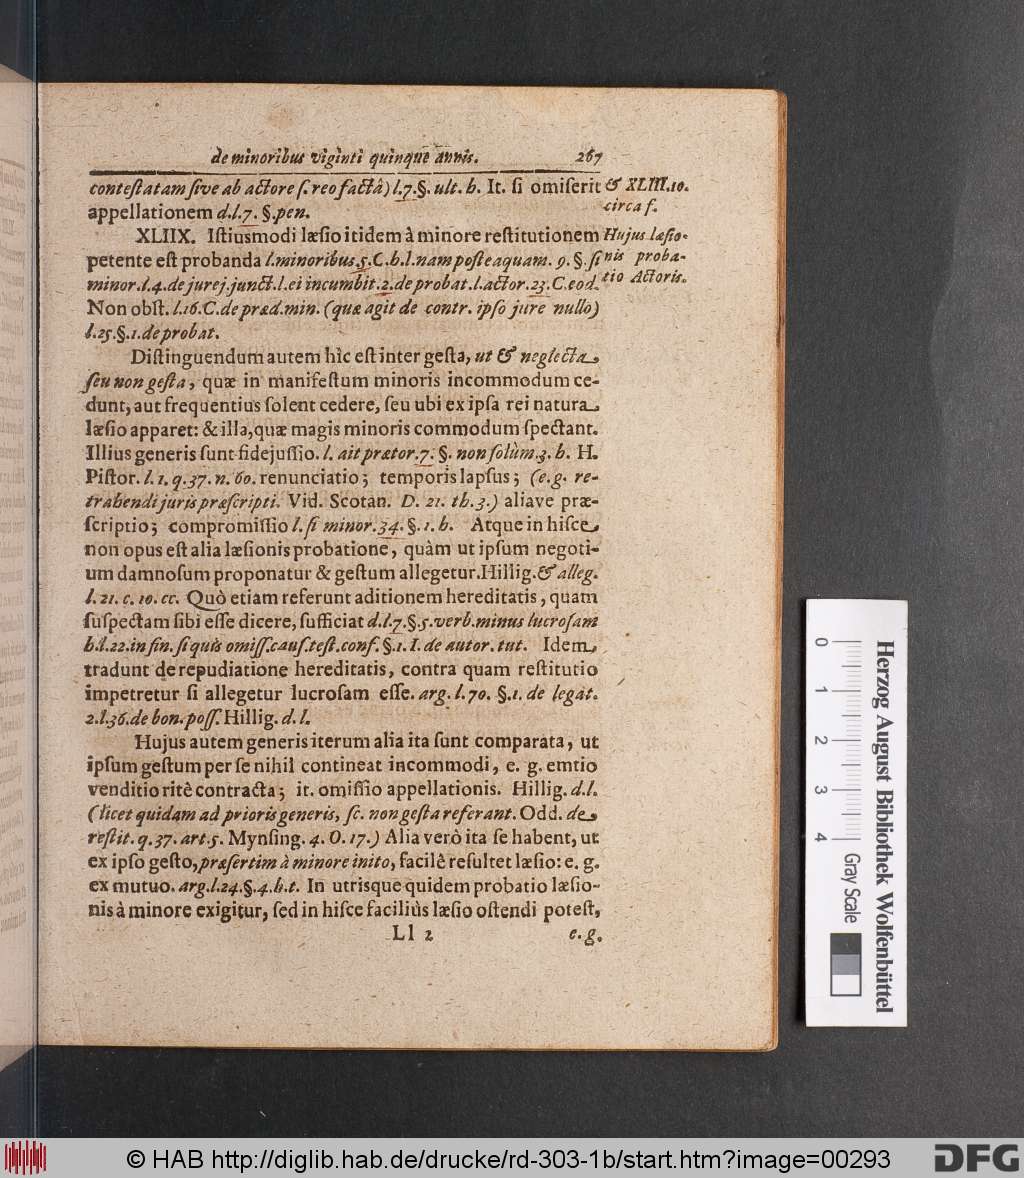 de minoribus viginti quinque annis. 267
contestatam sive ab actore s. reo factâ) l.7.§. ult. h. It. si omiserit
appellationem d.l.7. §.pen.
& XLIII.10.
circa f.
XLIIX. Istiusmodi læsio itidem à minore restitutionem
petente est probanda l.minoribus.5.C.h.l.nam posteaquam. 9.§.si
minor.l.4.de jurej.junct.l.ei incumbit.2.de probat.l.actor.23.C.eod.
Hujus læsio-
nis proba-
tio Actoris.
Non obst. l.16.C.de præd.min. (quæ agit de contr. ipso jure nullo)
l.25.§.1.de probat.
Distinguendum autem hîc est inter gesta, ut & neglecta
seu non gesta, quæ in manifestum minoris incommodum ce-
dunt, aut frequentius solent cedere, seu ubi ex ipsa rei natura
læsio apparet: & illa, quæ magis minoris commodum spectant.
Illius generis sunt fidejussio. l. ait prætor.7. §. non solùm.3. h. H.
Pistor. l. 1. q.37. n. 60. renunciatio; temporis lapsus; (e.g. re-
trahendi juris præscripti. Vid. Scotan. D. 21. th.3.) aliave præ-
scriptio; compromissio l. si minor.34.§.1. h. Atque in hisce
non opus est alia læsionis probatione, quàm ut ipsum negoti-
um damnosum proponatur & gestum allegetur. Hillig. & alleg.
l. 21. c. 10. cc. Quò etiam referunt aditionem hereditatis, quam
suspectam sibi esse dicere, sufficiat d.l.7.§.5.verb.minus lucrosam
h.l.22.in fin. si quis omiss.caus.test.conf.§.1.I.de autor. tut. Idem
tradunt de repudiatione hereditatis, contra quam restitutio
impetretur si allegetur lucrosam esse. arg. l.70. §.1. de legat.
2.l.36.de bon.poss. Hillig. d. l.
Hujus autem generis iterum alia ita sunt comparata, ut
ipsum gestum per se nihil contineat incommodi, e. g. emtio
venditio ritè contracta; it. omissio appellationis. Hillig. d.l.
(licet quidam ad prioris generis, sc. non gesta referant. Odd. de
restit. q.37. art.5. Mynsing. 4. O. 17.) Alia verò ita se habent, ut
ex ipso gesto, præsertim à minore inito, facilè resultet læsio: e. g.
ex mutuo. arg.l.24.§.4.h.t. In utrisque quidem probatio læsio-
nis à minore exigitur, sed in hisce faciliùs læsio ostendi potest,
Ll 2 e.g.
0 1 2 3 4
Gray Scale
Herzog August Bibliothek Wolfenbüttel
© HAB http://diglib.hab.de/drucke/rd-303-1b/start.htm?image=00293
DFG